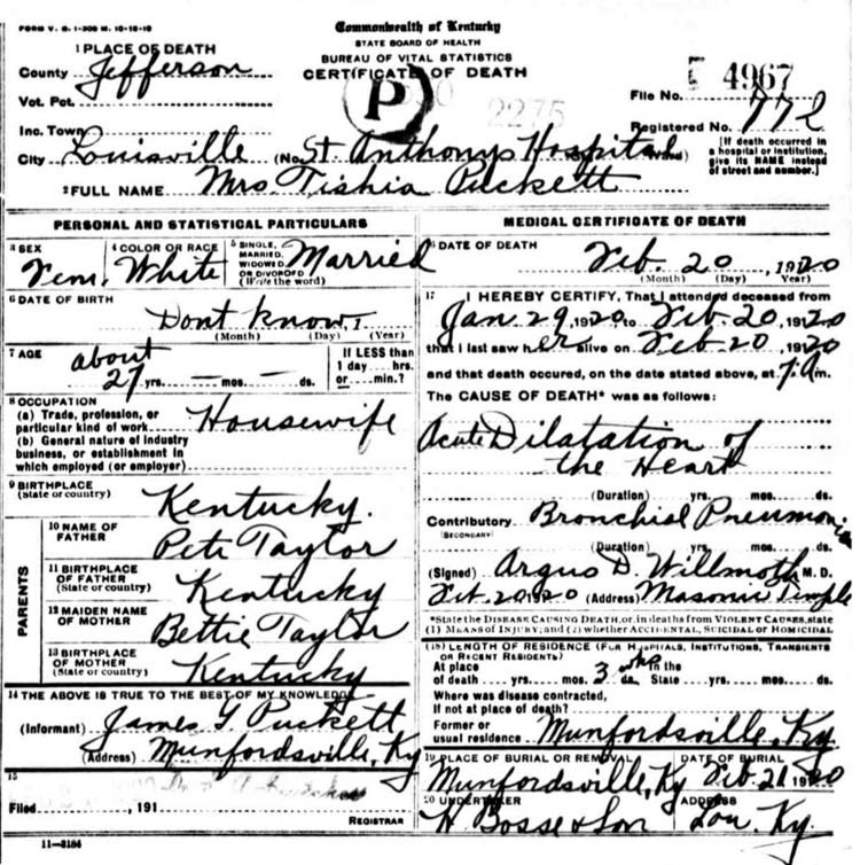 FORM V. S. 1-300 M. 10-18-19
Commonwealth of Kentucky
STATE BOARD OF HEALTH
BUREAU OF VITAL STATISTICS
CERTIFICATE OF DEATH
1 PLACE OF DEATH
County Jefferson
Vot. Pct.
Inc. Town
City Louisville (No. St Anthonys Hospital Ward)
P
2275
4967
File No.
Registered No. 772
[If death occurred in
a hospital or institution,
give its NAME instead
of street and number.]
2 FULL NAME Mrs Tishia Puckett
PERSONAL AND STATISTICAL PARTICULARS
3 SEX
Fem.
4 COLOR OR RACE
White
5 SINGLE,
MARRIED,
WIDOWED,
OR DIVORCED
(Write the word)
Married
6 DATE OF BIRTH
Dont know, 1
(Month) (Day) (Year)
7 AGE
about
27 yrs. — mos. — ds.
If LESS than
1 day hrs.
or min.?
8 OCCUPATION
(a) Trade, profession, or
particular kind of work Housewife
(b) General nature of industry
business, or establishment in
which employed (or employer)
9 BIRTHPLACE
(State or country)
Kentucky.
PARENTS
10 NAME OF
FATHER
Pete Taylor
11 BIRTHPLACE
OF FATHER
(State or country)
Kentucky
12 MAIDEN NAME
OF MOTHER
Bettie Taylor
13 BIRTHPLACE
OF MOTHER
(State or country)
Kentucky
14 THE ABOVE IS TRUE TO THE BEST OF MY KNOWLEDGE
(Informant) James G. Puckett
(Address) Munfordsville, Ky
15
Filed , 191
REGISTRAR
11—3184
MEDICAL CERTIFICATE OF DEATH
DATE OF DEATH
Feb. 20, 1920
(Month) (Day) Year)
17 I HEREBY CERTIFY, That I attended deceased from
Jan. 29, 1920, to Feb. 20, 1920
that I last saw her alive on Feb 20, 1920
and that death occured, on the date stated above, at 7. A m.
The CAUSE OF DEATH* was as follows:
Acute Dilatation of
the Heart
(Duration) yrs. mos. ds.
Contributory Bronchial Pneumonia
(SECONDARY)
(Duration) yrs. mos. ds.
(Signed) Argus D. Willmoth M. D.
Feb. 20 1920 (Address) Masonic Temple
*State the DISEASE CAUSING DEATH, or, in deaths from VIOLENT CAUSES, state
(1) MEANS OF INJURY; and (2) whether ACCIDENTAL, SUICIDAL or HOMICIDAL
(18) LENGTH OF RESIDENCE (FOR HOSPITALS, INSTITUTIONS, TRANSIENTS
OR RECENT RESIDENTS)
At place In the
of death yrs. mos. 3 wks ds. State yrs. mos. ds.
Where was disease contracted,
If not at place of death?
Former or
usual residence Munfordsville, Ky
19 PLACE OF BURIAL OR REMOVAL
Munfordsville, Ky
DATE OF BURIAL
Feb 21 1920
20 UNDERTAKER
H Bosse & Son
ADDRESS
Lou. Ky.